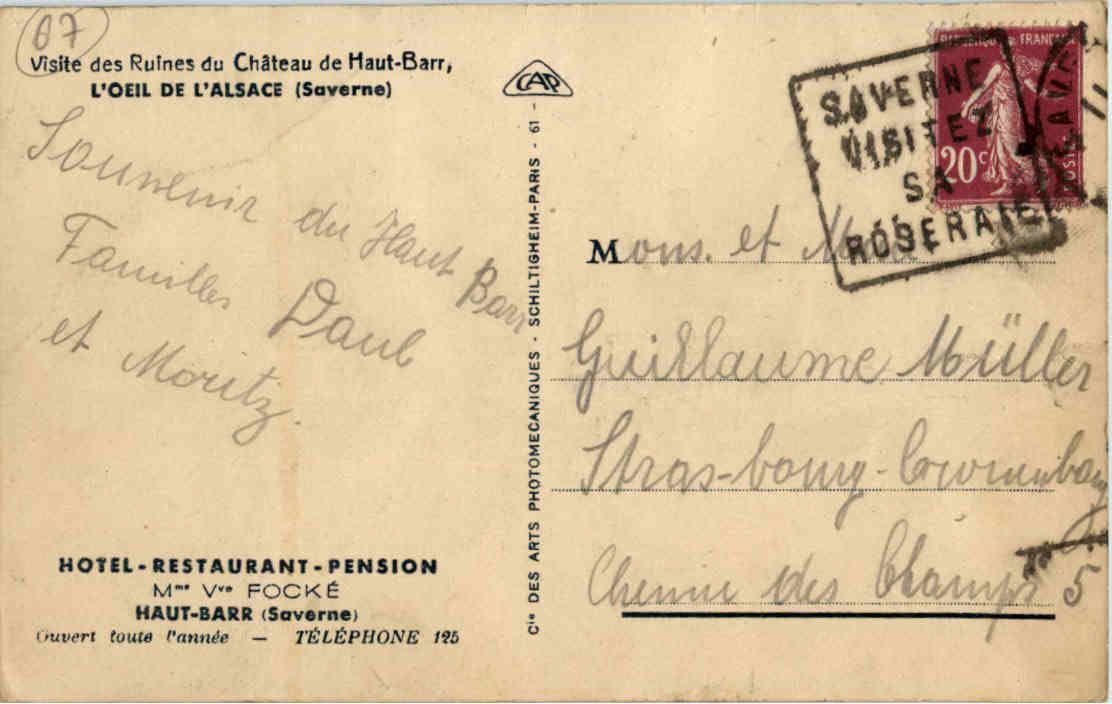 67
Visite des Ruines du Château de Haut-Barr,
L'OEIL DE L'ALSACE (Saverne)
Souvenir du Haut Barr
Familles Daul
et Moritz.
HOTEL-RESTAURANT-PENSION
Mme Vve FOCKÉ
HAUT-BARR (Saverne)
Ouvert toute l'année — TÉLÉPHONE 125
CAP
Cie DES ARTS PHOTOMECANIQUES - SCHILTIGHEIM-PARIS - 61 -
SAVERNE
VISITEZ
SA
ROSERAIE
REPUBLIQUE FRANCAISE
20c
Mons. et
Guillaume Müller
Stras-bourg-Cronenbourg
Chemin des Champs 5